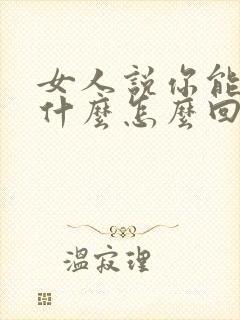 女人説你能
什麼怎麼回
溫寂理